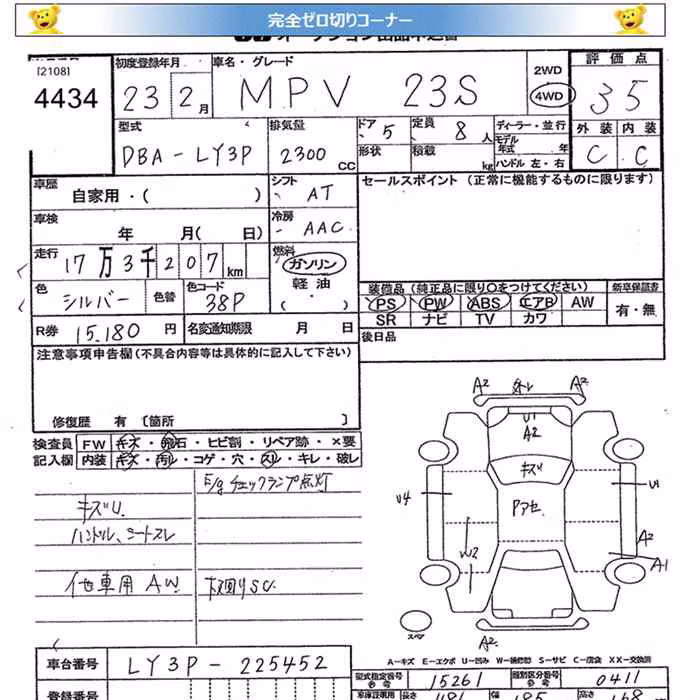 完全ゼロ切りコーナー
[2108]
4434
初度登録年月
23 2月
車名・グレード
MPV 23S
2WD
4WD
評価点
35
型式
DBA-LY3P
排気量
2300 CC
ドア
5
形状
定員
8人
積載
kg
ディーラー・並行
モデル年式 年
ハンドル 左・右
外装 内装
C C
車歴
自家用・( )
シフト
AT
セールスポイント (正常に機能するものに限ります)
車検
年 月( 日)
冷房
AAC
走行
17万3千207km
燃料
ガソリン
軽油
( ・ )
色
シルバー
色替
色コード
38P
装備品 (純正品に限り○をつけてください)
新車保証書
PS PW ABS エアB AW
SR ナビ TV カワ
有・無
R券 15,180円
名変通知期限 月 日
後日品
注意事項申告欄(不具合内容等は具体的に記入して下さい)
修復歴 有 〔箇所 〕
検査員
記入欄
FW キズ・飛石・ヒビ割・リペア跡・×要
内装 キズ・汚レ・コゲ・穴・スレ・キレ・破レ
E/gチェックランプ点灯
キズU
ハンドル、シートスレ
他車用AW
下廻りSC
A2 A2
U1
A2
キズ
Pアセ
U4
U1
W2
A2
A1
スペア
A2
A-キズ E-エクボ U-凹み W-補修跡 S-サビ C-腐食 XX-交換済
車台番号
LY3P-225452
型式指定番号
参考
15261
類別区分番号
参考
0411
登録番号
車庫証明用
長さ
幅
高さ